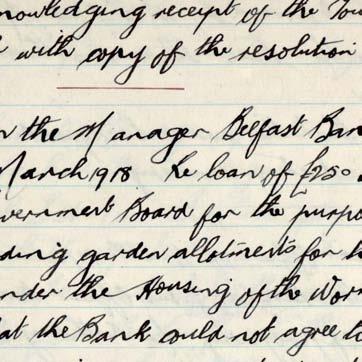 nowledging receipt of the Tow
with copy of the resolution
the Manager Belfast Ban
March 1918 Re loan of £250
vernment Board for the purpo
ding garden allotments for t
nder the Housing of the Wor
at the Bank could not agree to